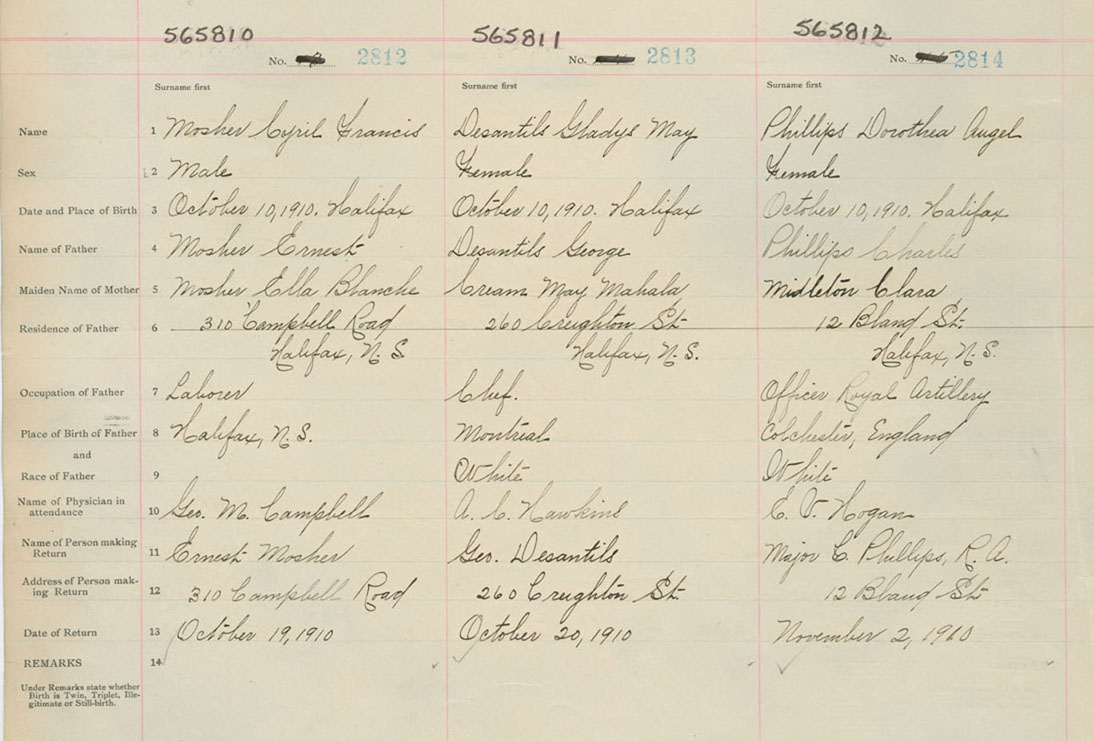 565810 565811 565812
No. 2812 No. 2813 No. 2814
Surname first Surname first Surname first
Name 1 Mosher Cyril Francis Desantils Gladys May Phillips Dorothea Angel
Sex 2 Male Female Female
Date and Place of Birth 3 October 10, 1910. Halifax October 10, 1910. Halifax October 10, 1910. Halifax
Name of Father 4 Mosher Ernest Desantils George Phillips Charles
Maiden Name of Mother 5 Mosher Ella Blanche Cream May Mahala Midleton Clara
Residence of Father 6 310 Campbell Road 260 Creighton St. 12 Bland St.
Halifax, N. S. Halifax, N. S. Halifax, N. S.
Occupation of Father 7 Laborer Chef. Officer Royal Artillery
Place of Birth of Father 8 Halifax, N. S. Montreal Colchester, England
and
Race of Father 9 White White
Name of Physician in
attendance 10 Geo. M. Campbell A. C. Hawkins E. V. Hogan
Name of Person making
Return 11 Ernest Mosher Geo. Desantils Major C. Phillips, R. A.
Address of Person mak-
ing Return 12 310 Campbell Road 260 Creighton St. 12 Bland St.
Date of Return 13 October 19, 1910 October 20, 1910 November 2, 1910
REMARKS 14
Under Remarks state whether
Birth is Twin, Triplet, Ille-
gitimate or Still-birth.